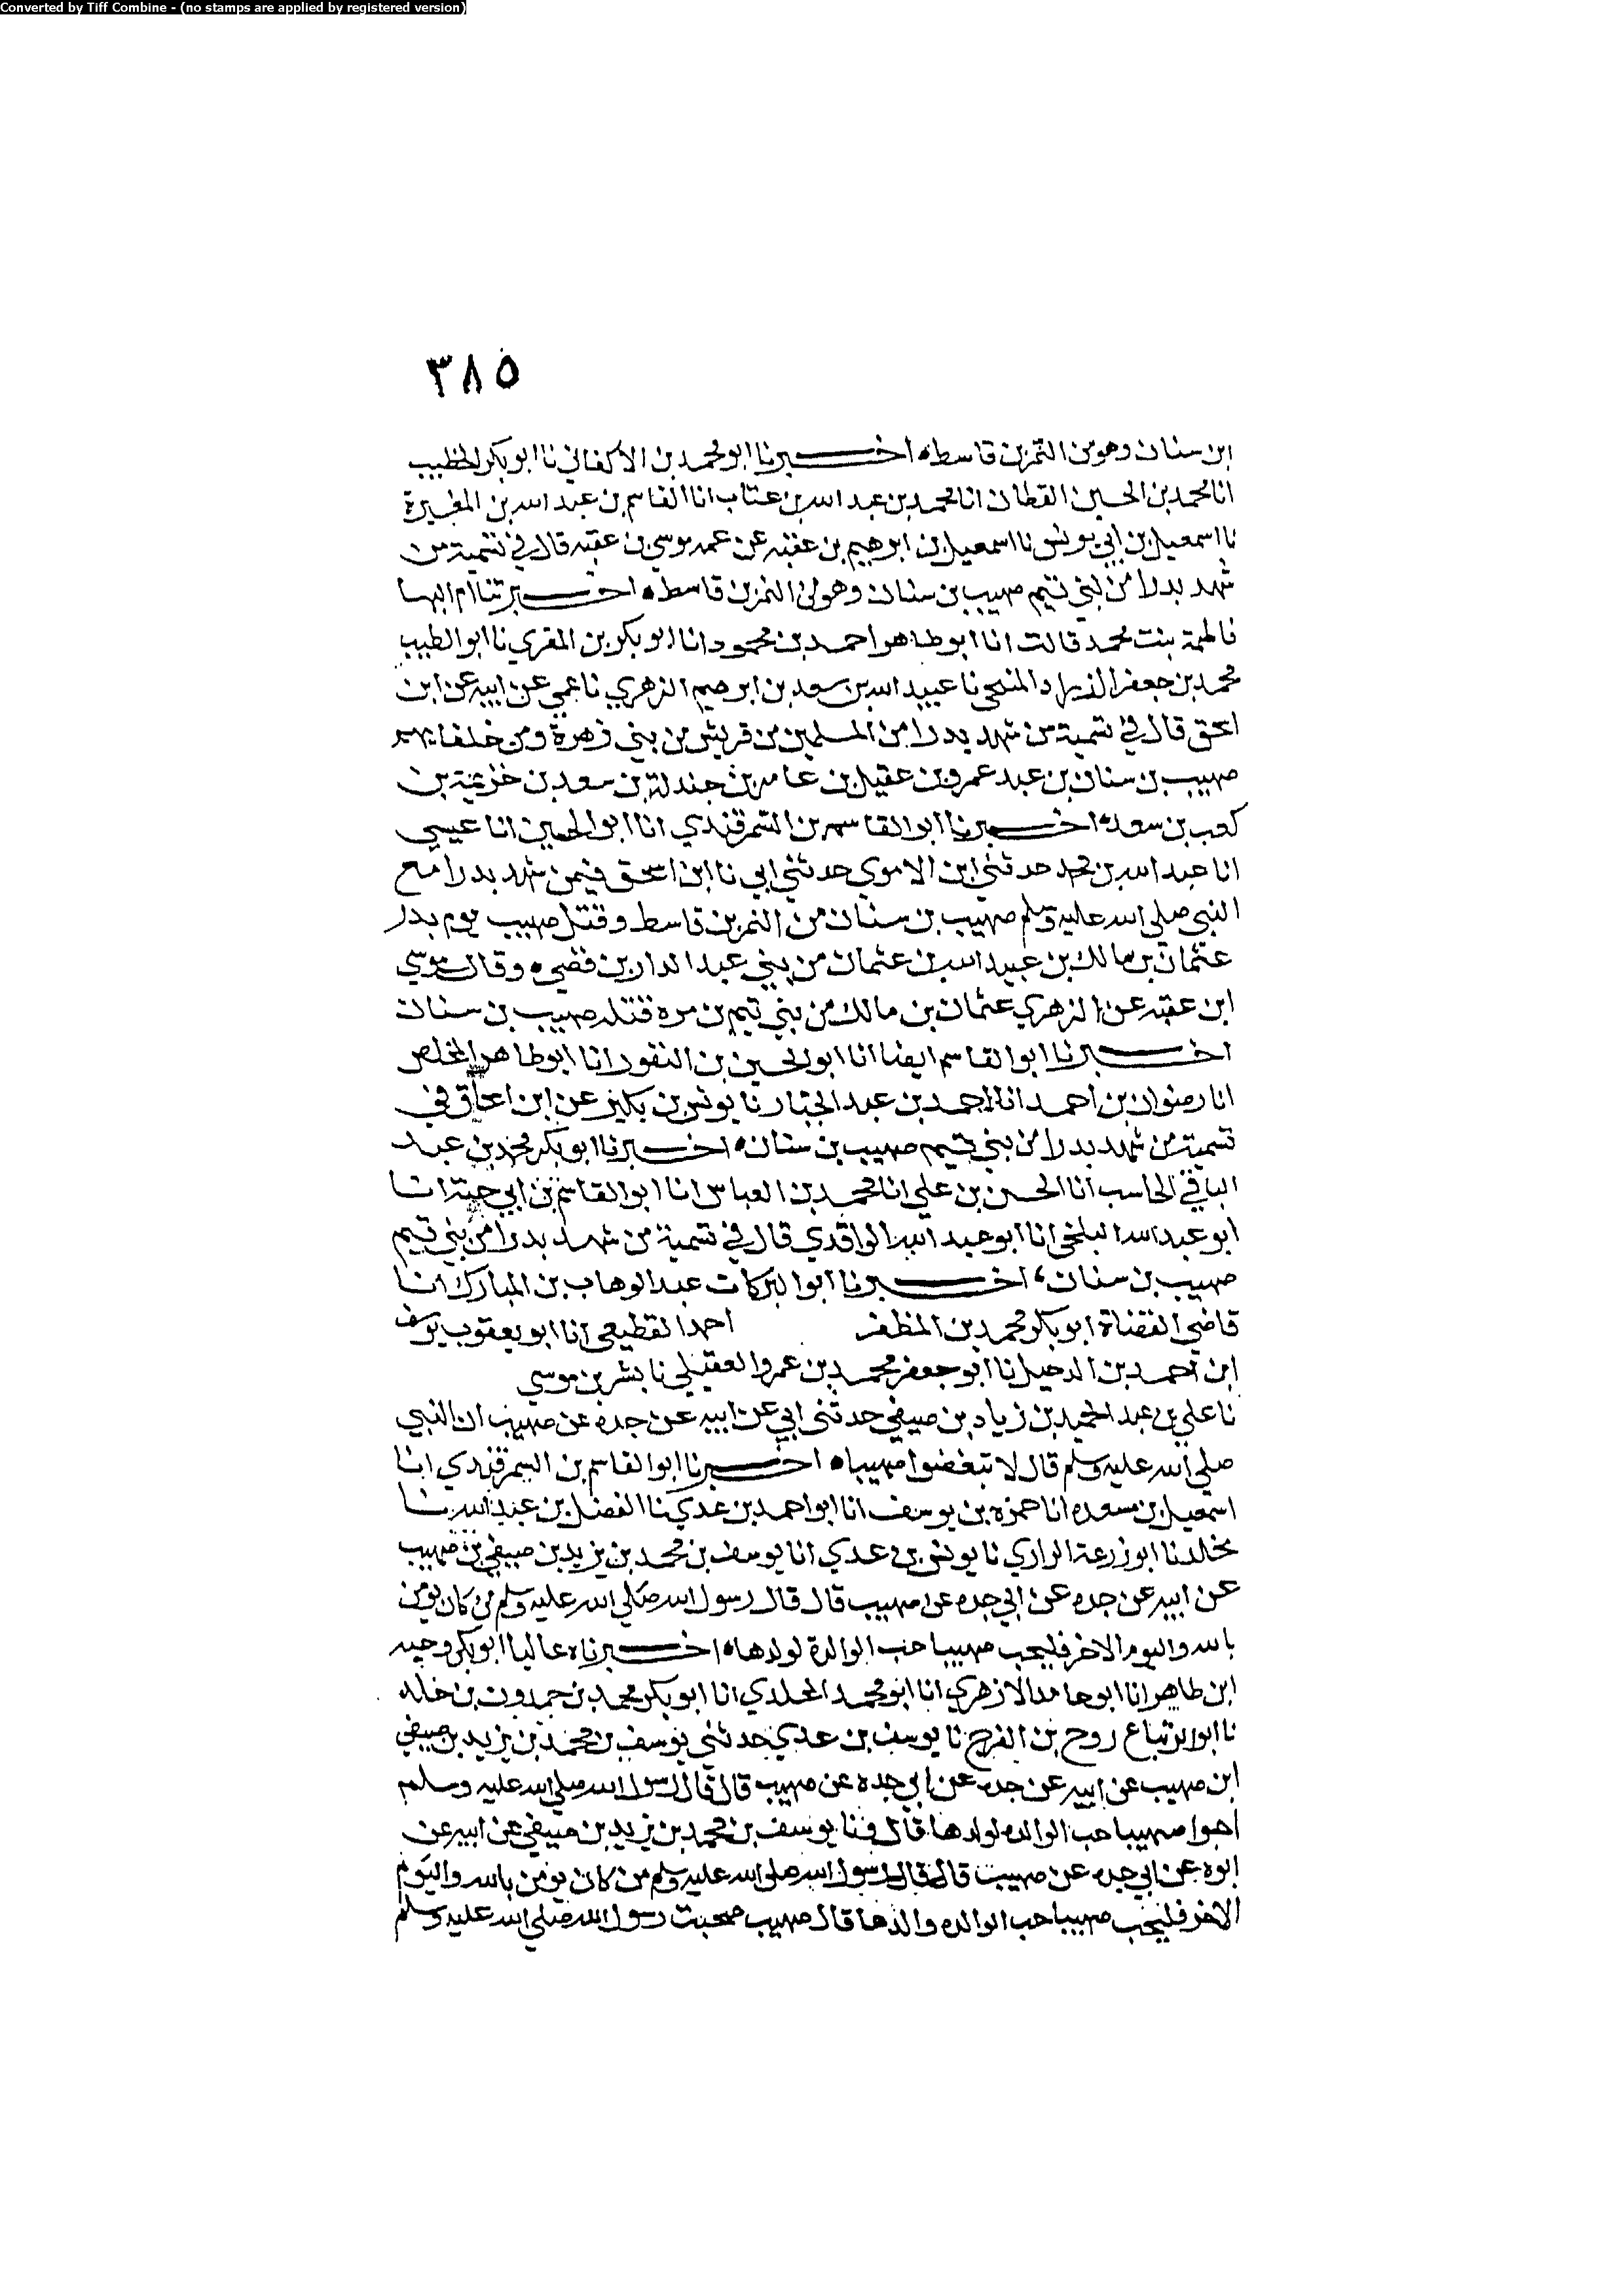 Converted by Tiff Combine - (no stamps are applied by registered version)
٣٨٥
ابن سنان وهو من النمر بن قاسط ه اخبرنا ابو محمد بن الاكفاني نا ابو بكر الخطيب
انا محمد بن الحسين القطان انا محمد بن عبد الله بن عتاب انا القاسم بن عبد الله بن المغيرة
نا اسمعيل بن ابي يونس نا اسمعيل بن ابرهيم بن عقبه عن عمه موسي بن عقبه قال في تسمية من
شهد بدرا من بني تيم صهيب بن سنان وهو من النمر بن قاسط ه اخبرتنا ام البها
فاطمة بنت محمد قالت انا ابو طاهر احمد بن محمود انا ابو بكر بن المقري نا ابو الطيب
محمد بن جعفر الزراد المنبجي نا عبيد الله بن سعد بن ابرهيم الزهري نا عمي عن ابيه عن ابن
اسحق قال في تسمية من شهد بدرا من المسلمين من قريش من بني زهرة ومن خلفايهم
صهيب بن سنان بن عبد عمرو بن عقيل بن عامر بن جندلة بن سعد بن خزيمة بن
كعب بن سعد ه اخبرنا ابو القاسم بن السمرقندي انا ابو الحسين انا عيسي
انا عبد الله بن محمد حدثني ابن الاموي حدثني ابي نا ابن اسحق فيمن شهد بدرا مع
النبي صلي الله عليه وسلم صهيب بن سنان من النمر بن قاسط وقتل صهيب يوم بدر
عثمان بن مالك بن عبيد الله بن عثمان من بني عبد الدار بن قصي ه وقال موسي
ابن عقبه عن الزهري عثمان بن مالك من بني تيم بن مره قتله صهيب بن سنان
اخبرنا ابو القاسم ايضا انا ابو الحسين بن النقور انا ابو طاهر المخلص
انا رضوان بن احمد انا احمد بن عبد الجبار نا يونس بن بكير عن ابن اسحاق في
تسمية من شهد بدرا من بني تيم صهيب بن سنان ه اخبرنا ابو بكر محمد بن عبد
الباقي الحاسب انا الحسن بن علي انا محمد بن العباس انا ابو القاسم بن ابي حية انا
ابو عبد الله البلخي انا ابو عبد الله الواقدي قال في تسمية من شهد بدرا من بني تيم
صهيب بن سنان ، اخبرنا ابو البركات عبد الوهاب بن المبارك انا
قاضي القضاة ابو بكر محمد بن المظفر احمد القطيعي انا ابو يعقوب يوسف
ابن احمد بن الدخيل نا ابو جعفر محمد بن عمرو العقيلي نا بشر بن موسي
نا علي بن عبد الحميد بن زياد بن صيفي حدثني ابي عن ابيه عن جده عن صهيب ان النبي
صلي الله عليه وسلم قال لا تبغضوا صهيبا ه اخبرنا ابو القاسم بن السمرقندي انا
اسمعيل بن مسعده انا حمزه بن يوسف انا ابو احمد بن عدي نا الفضل بن عبد الله بنا
مخالد نا ابو زرعة الرازي نا يونس بن عدي انا يوسف بن محمد بن يزيد بن صيفي بن صهيب
عن ابيه عن جده عن ابي جده عن صهيب قال قال رسول الله صلي الله عليه وسلم من كان يومن
بالله واليوم الاخر فليحب صهيبا حب الوالدة لولدها ه اخبرناه عاليا ابو بكر وجيه
ابن طاهر انا ابو حامد الازهري انا ابو محمد المخلدي انا ابو بكر محمد بن حمدون بن خلد
نا ابو الزنباع روح بن الفرج نا يوسف بن عدي حدثني يوسف بن محمد بن يزيد بن صيفي
ابن صهيب عن ابيه عن جده عن ابي جده عن صهيب قال قال رسول الله صلي الله عليه وسلم
احبوا صهيبا حب الوالده لولدها قال ونا يوسف بن محمد بن يزيد بن صيفي عن ابيه عن
ابوه عن ابي جده عن صهيب قال قال رسول الله صلي الله عليه وسلم من كان يومن بالله واليوم
الاخر فليحب صهيبا حب الوالده والدها قال صهيب صحبت رسول الله صلي الله عليه وسلم